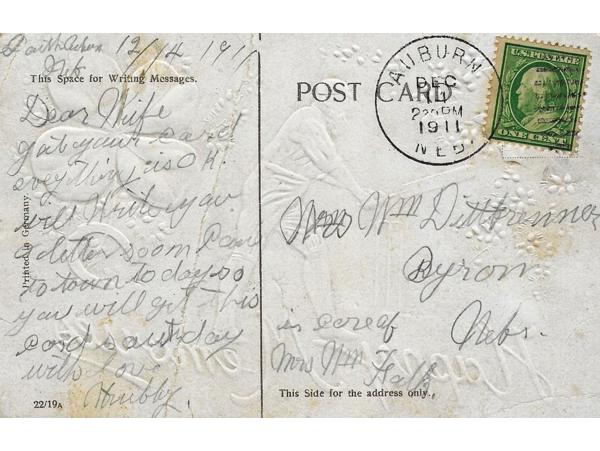 South Auburn 12/14 1911
Neb
This Space for Writing Messages.
Dear Wife
got your card
everything is OK.
will Write you
a letter soon Came
to town to day so
you will get this
card saturday
with love
Hubby
Printed in Germany
22/19A
POST CARD
AUBURN
DEC
14
230PM
1911
NEB.
U.S. POSTAGE
ONE CENT
Mrs Wm Dittbrenner
Byron
Nebr.
in care of
Mrs Wm
Falk
This Side for the address only.